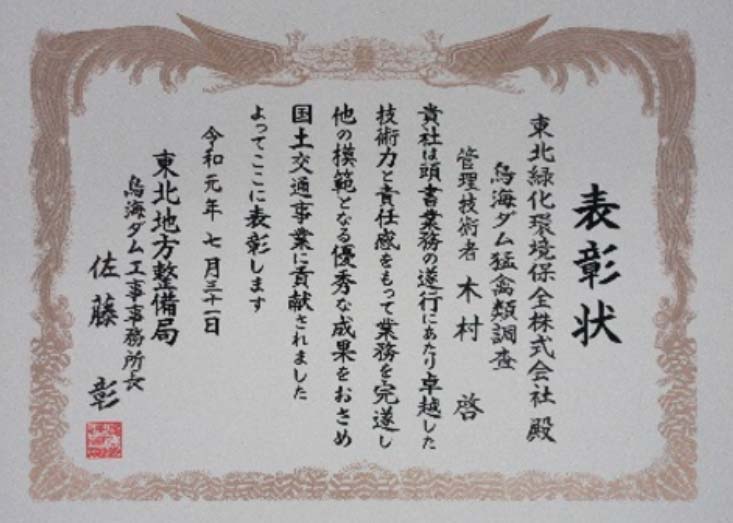 表彰状
東北緑化環境保全株式会社 殿
鳥海ダム猛禽類調査
管理技術者 木村 啓
貴社は頭書業務の遂行にあたり卓越した
技術力と責任感をもって業務を完遂し
他の模範となる優秀な成果をおさめ
国土交通事業に貢献されました
よってここに表彰します
令和元年七月三十一日
東北地方整備局
鳥海ダム工事事務所長
佐藤 彰